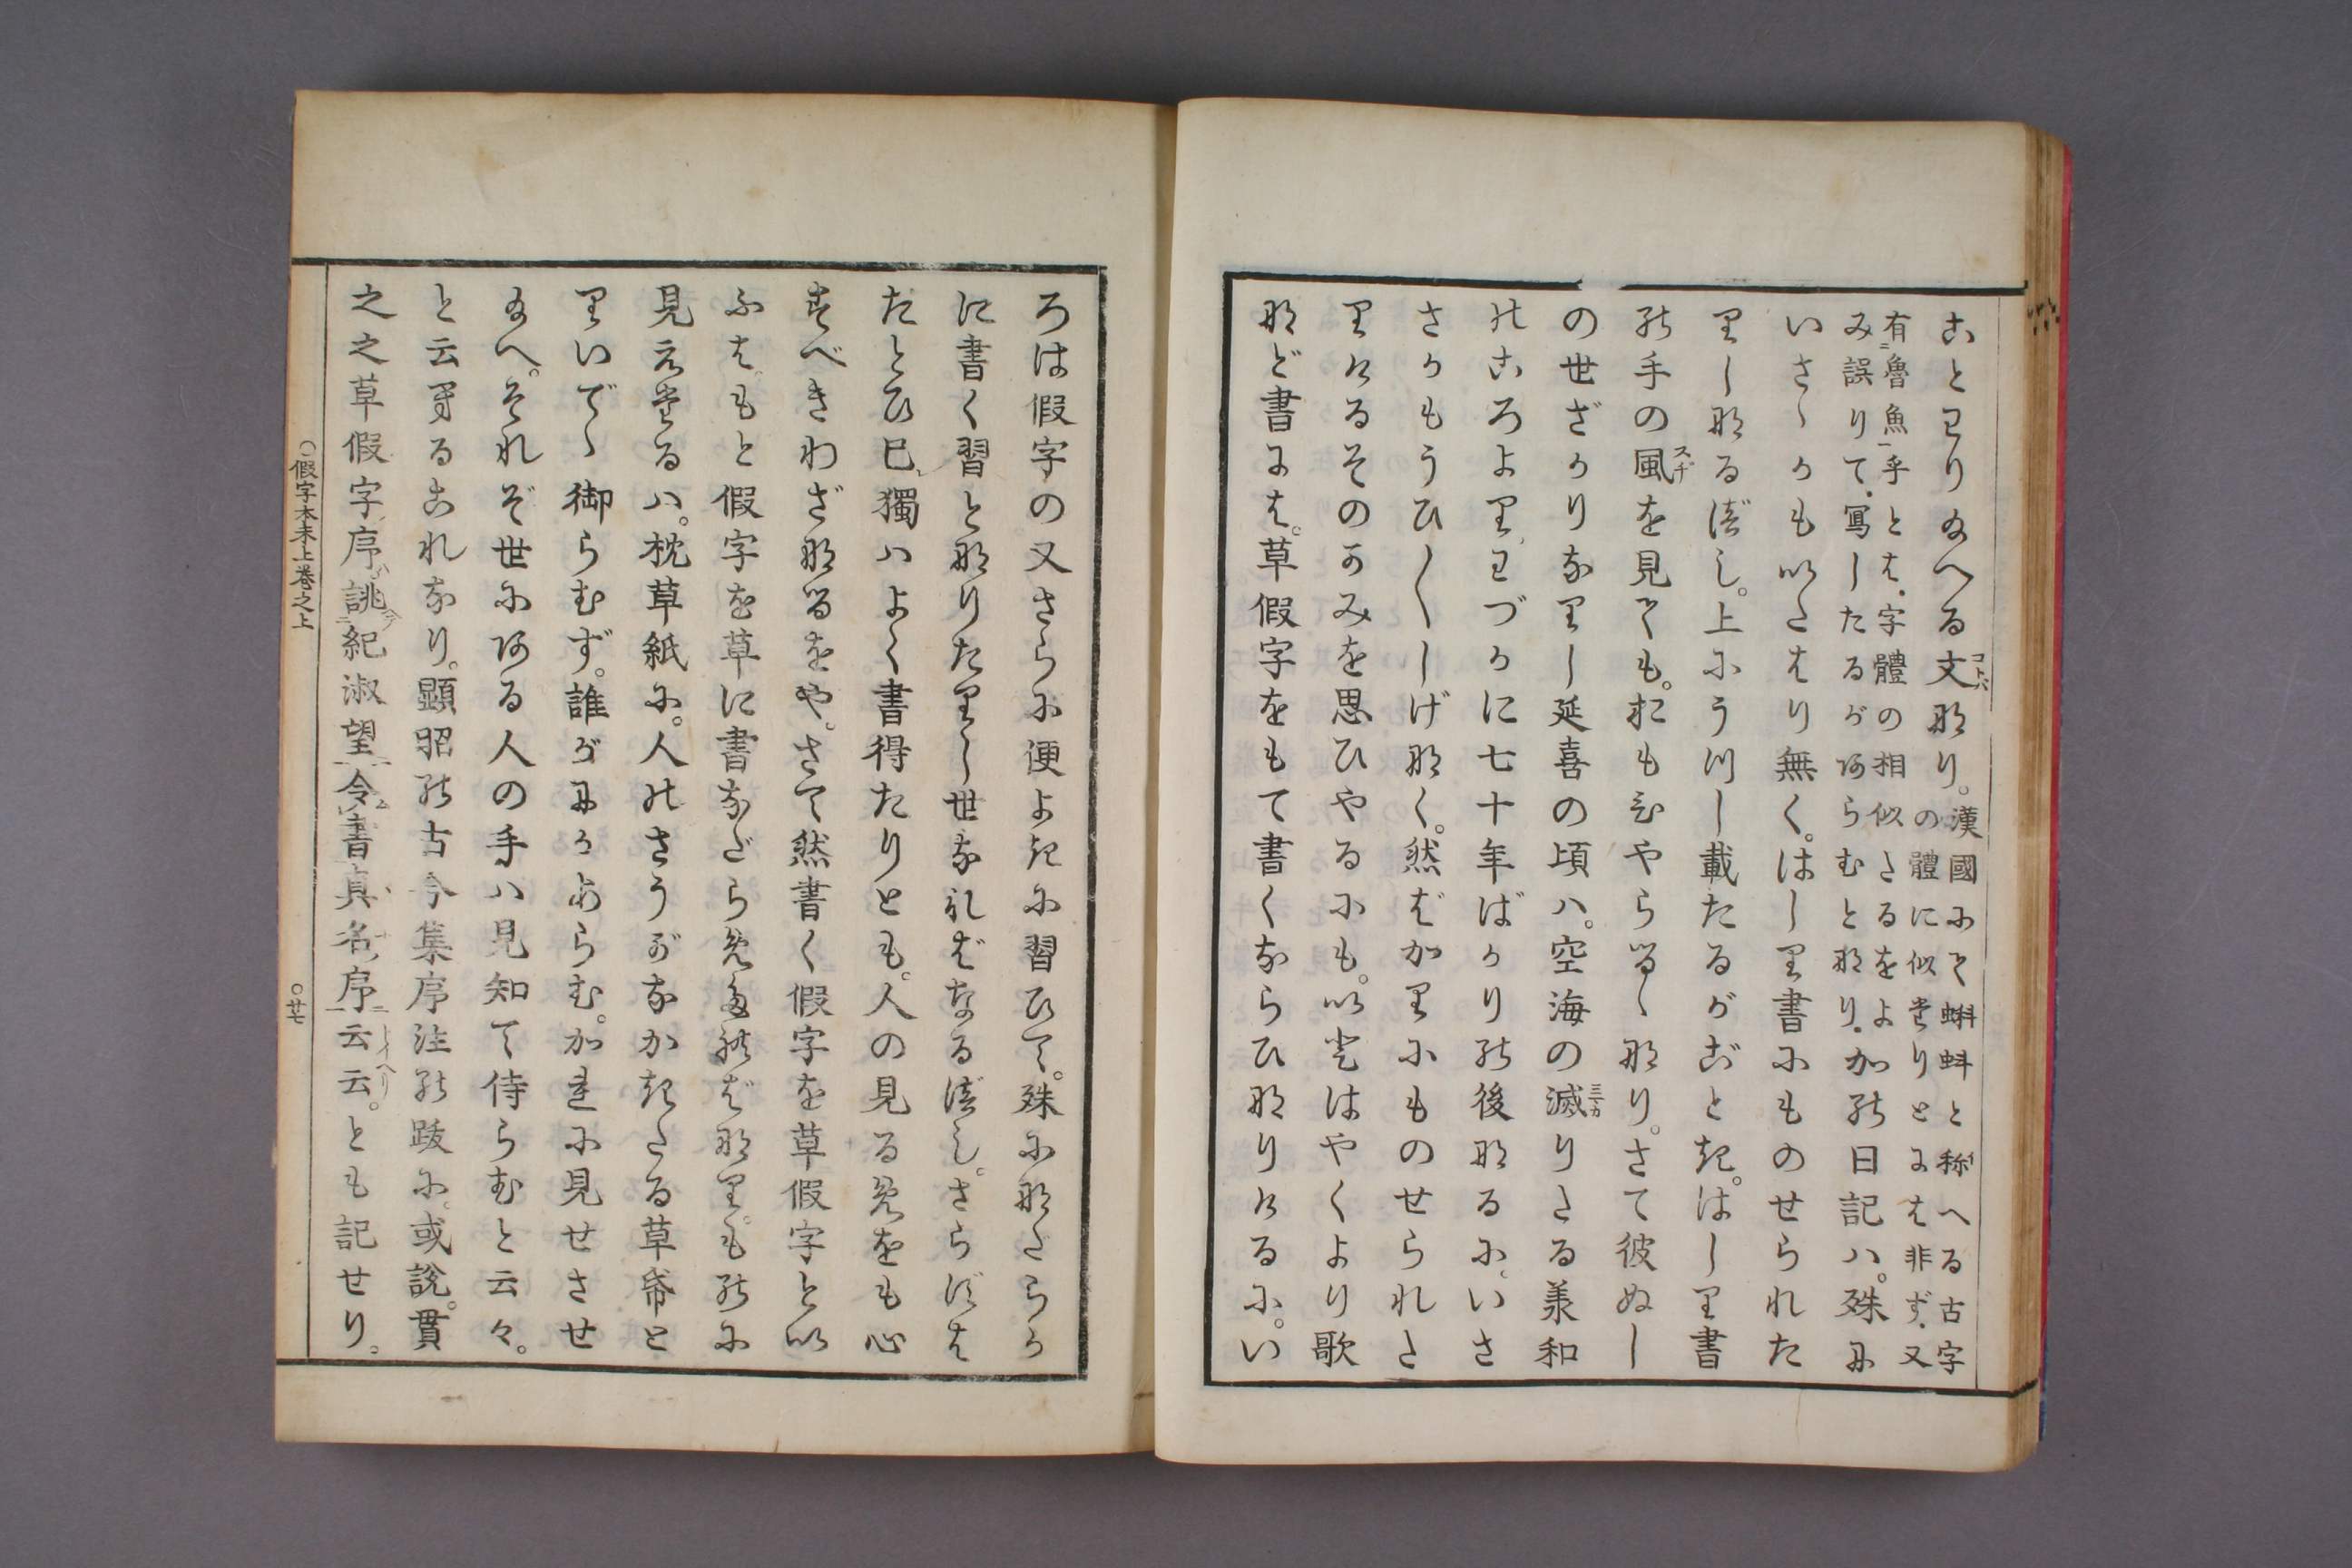 ことわり給へる文なり。漢國にて蝌蚪と称へる古字
の體に似たりとにハ非ず。又
有魯魚乎とは、字體の相似たるをよ
み誤りて、寫したるがあらむとなり。かの日記ハ。殊に
いさゝかもいたはり無く。はしり書にものせられた
りしなるべし。上にうつし載たるがごとき。はしり書
の手の風を見ても。おもひやらるゝなり。さて彼ぬし
の世ざかりなりし延喜の頃ハ。空海の滅りたる兼和
のころより、わづかに七十年ばかりの後なるに、いさ
さかもうひ〳〵しげなく。然ばかりにものせられた
りけるそのかみを思ひやるにも。いとはやくより歌
など書には。草假字をもて書くならひなりけるに。い
ろは假字の又さらに便よきに習ひて。殊になだらか
に書く習となりたりし世なればなるべし。さらずは
たとひ己獨ハよく書得たりとも。人の見るめをも心
すべきわざなるをや。さて然書く假字を草假字とい
ふは。もと假字を草に書ながらめたればなり。ものに
見えたるハ。枕草紙に。人のさうがなかきたる草帋と
りいでゝ御らむず。誰がにかあらむ。かれに見せさせ
給へ。それぞ世にある人の手ハ見知て侍らむと云々。
と云るこれなり。顕昭の古今集序注の跋に。或説。貫
之之草假字序誂紀淑望令書真名序云云。とも記せり。
○假字本末上巻之上
○廿七